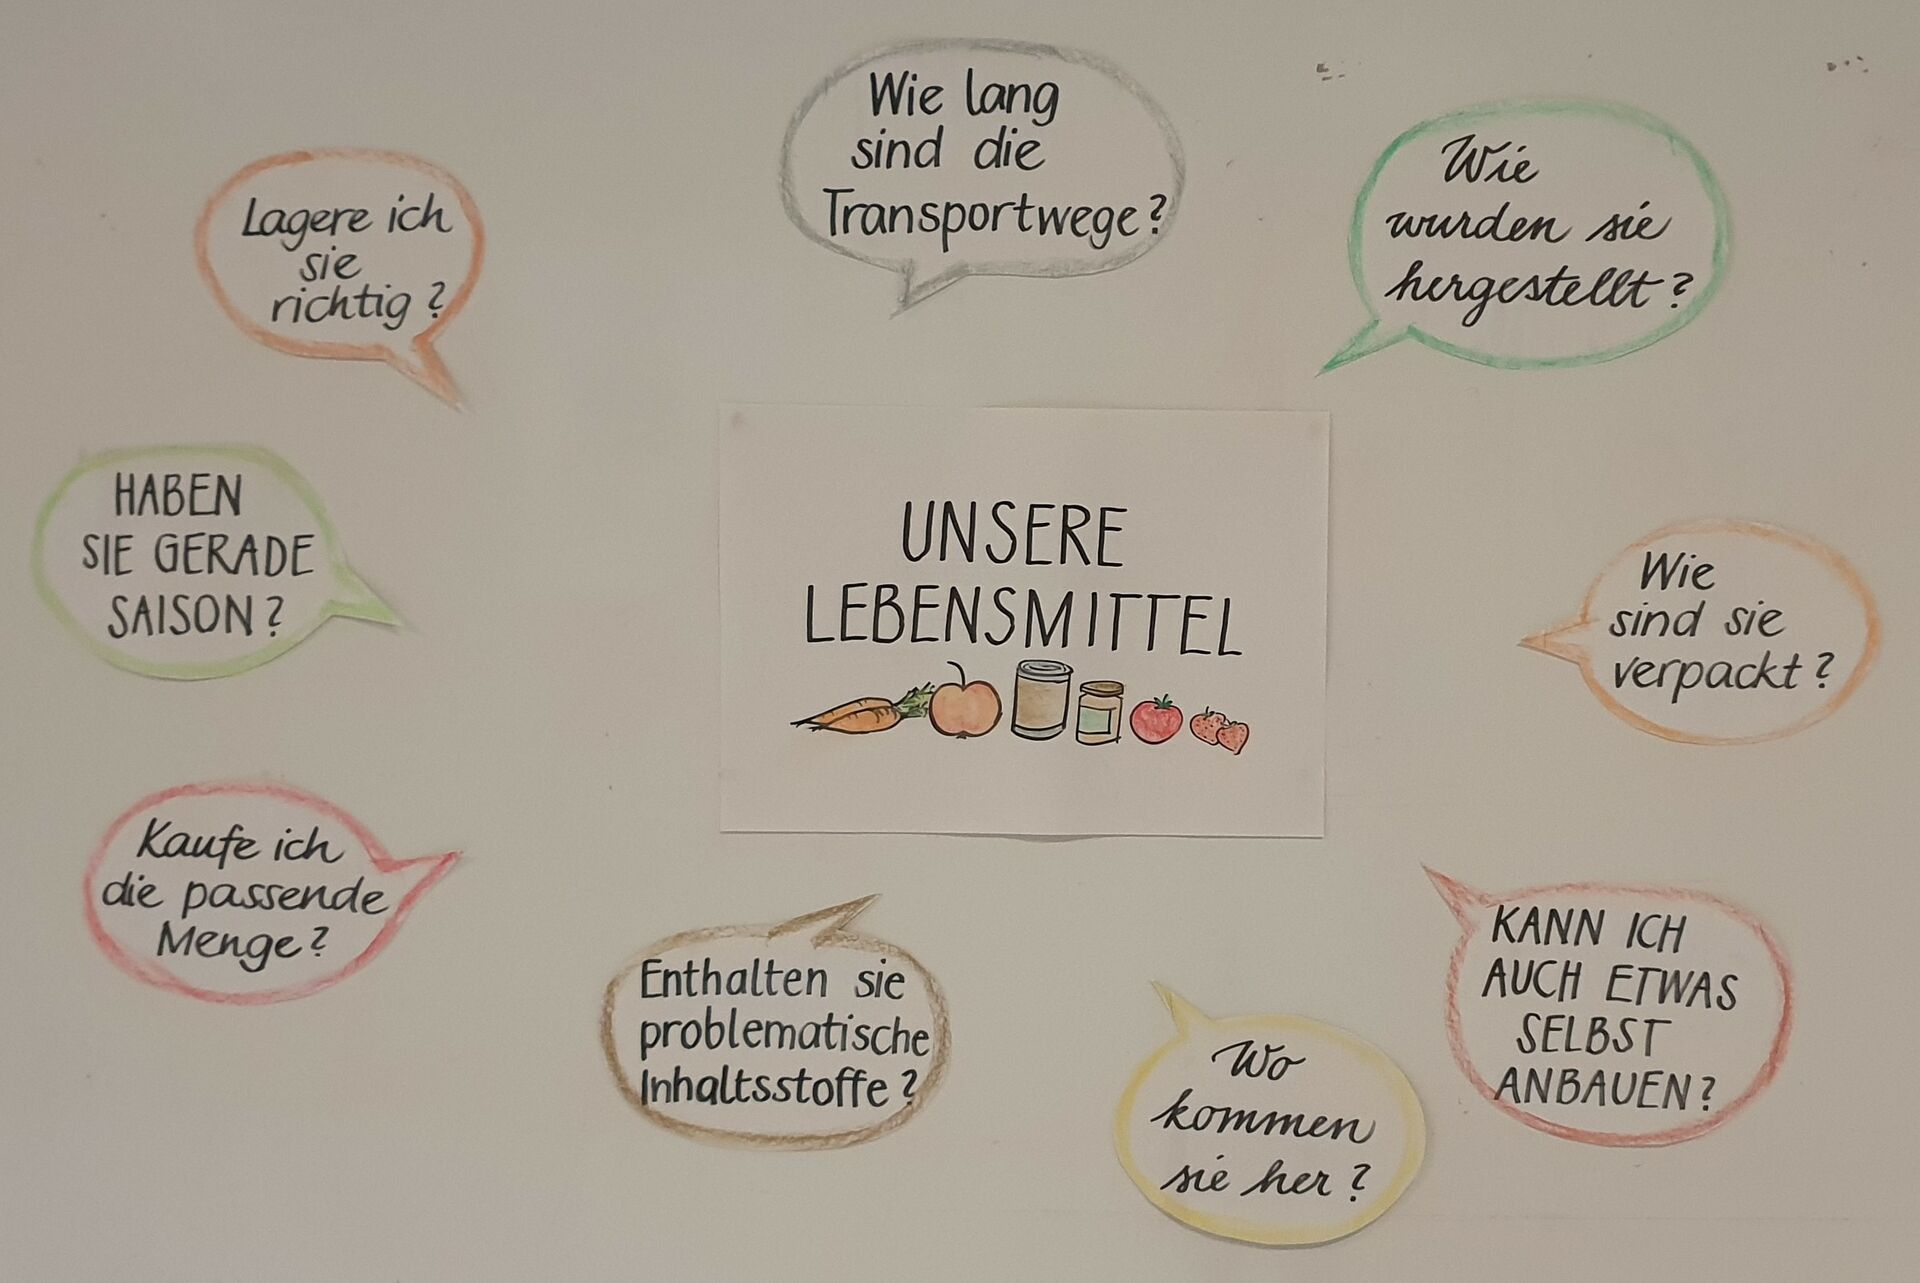 Wie lang
sind die
Transportwege?
Wie
wurden sie
hergestellt?
Lagere ich
sie
richtig?
HABEN
SIE GERADE
SAISON?
UNSERE
LEBENSMITTEL
Wie
sind sie
verpackt?
Kaufe ich
die passende
Menge?
Enthalten sie
problematische
Inhaltsstoffe?
Wo
kommen
sie her?
KANN ICH
AUCH ETWAS
SELBST
ANBAUEN?